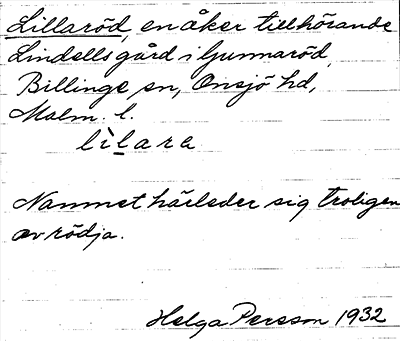 Lillaröd, en åker tillhörande
Lindells gård i Gunnaröd,
Billinge sn, Onsjö hd,
Malm. l.
lìlara
Namnet härleder sig troligen
av rödja.
Helga Persson 1932